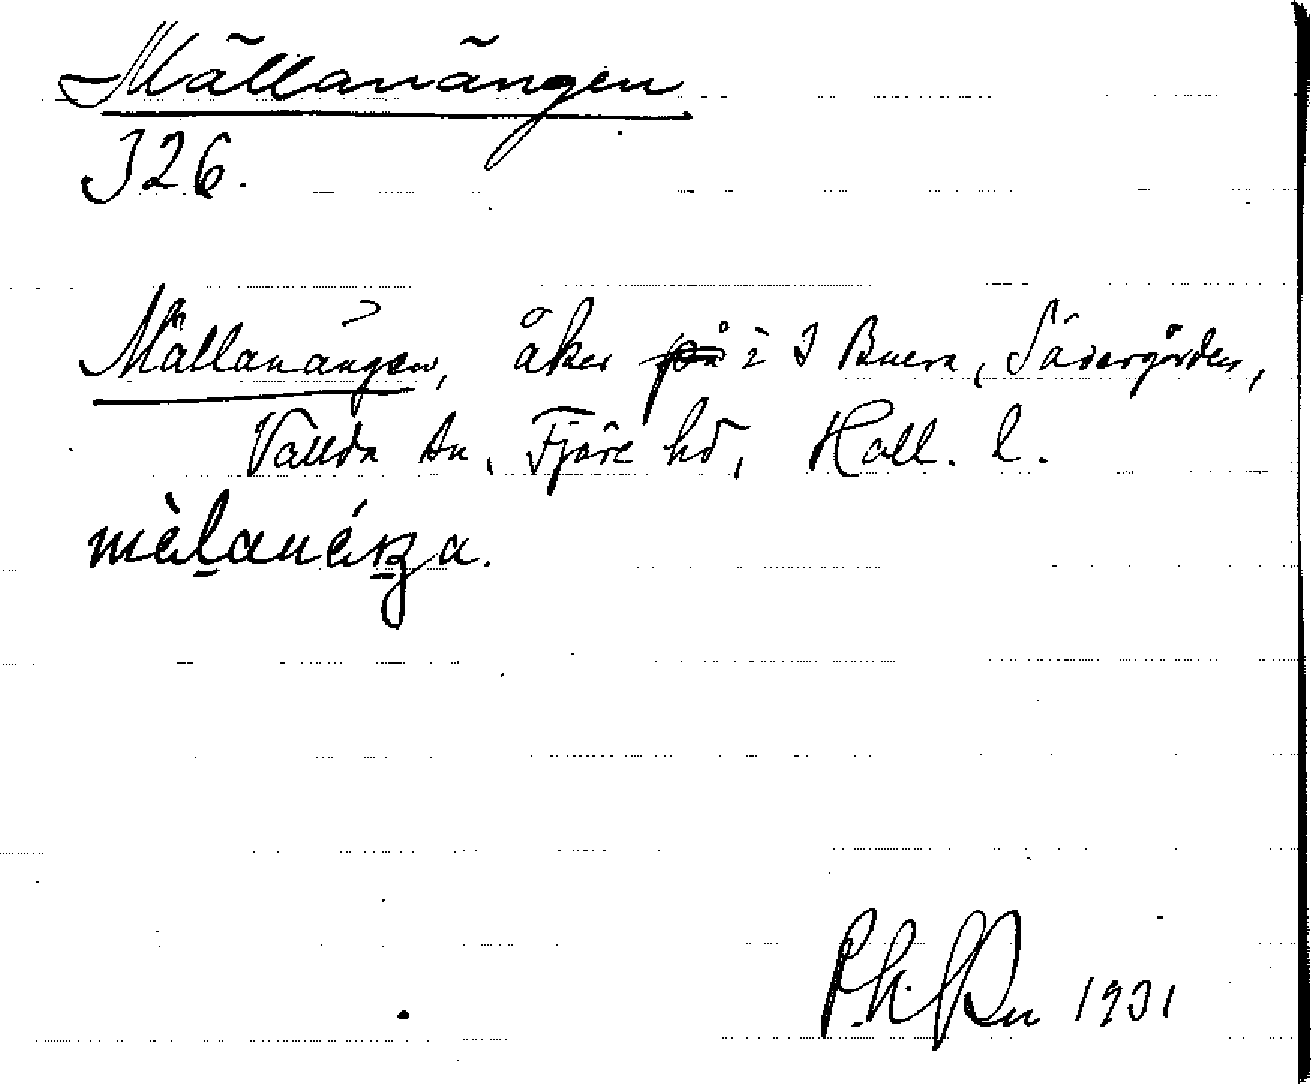 Mällanängen
326.
Mällanängen, åker på i 3 Buera, Södergården,
Vallda sn, Fjäre hd, Hall. l.
mèl̠anéŋa.
1931